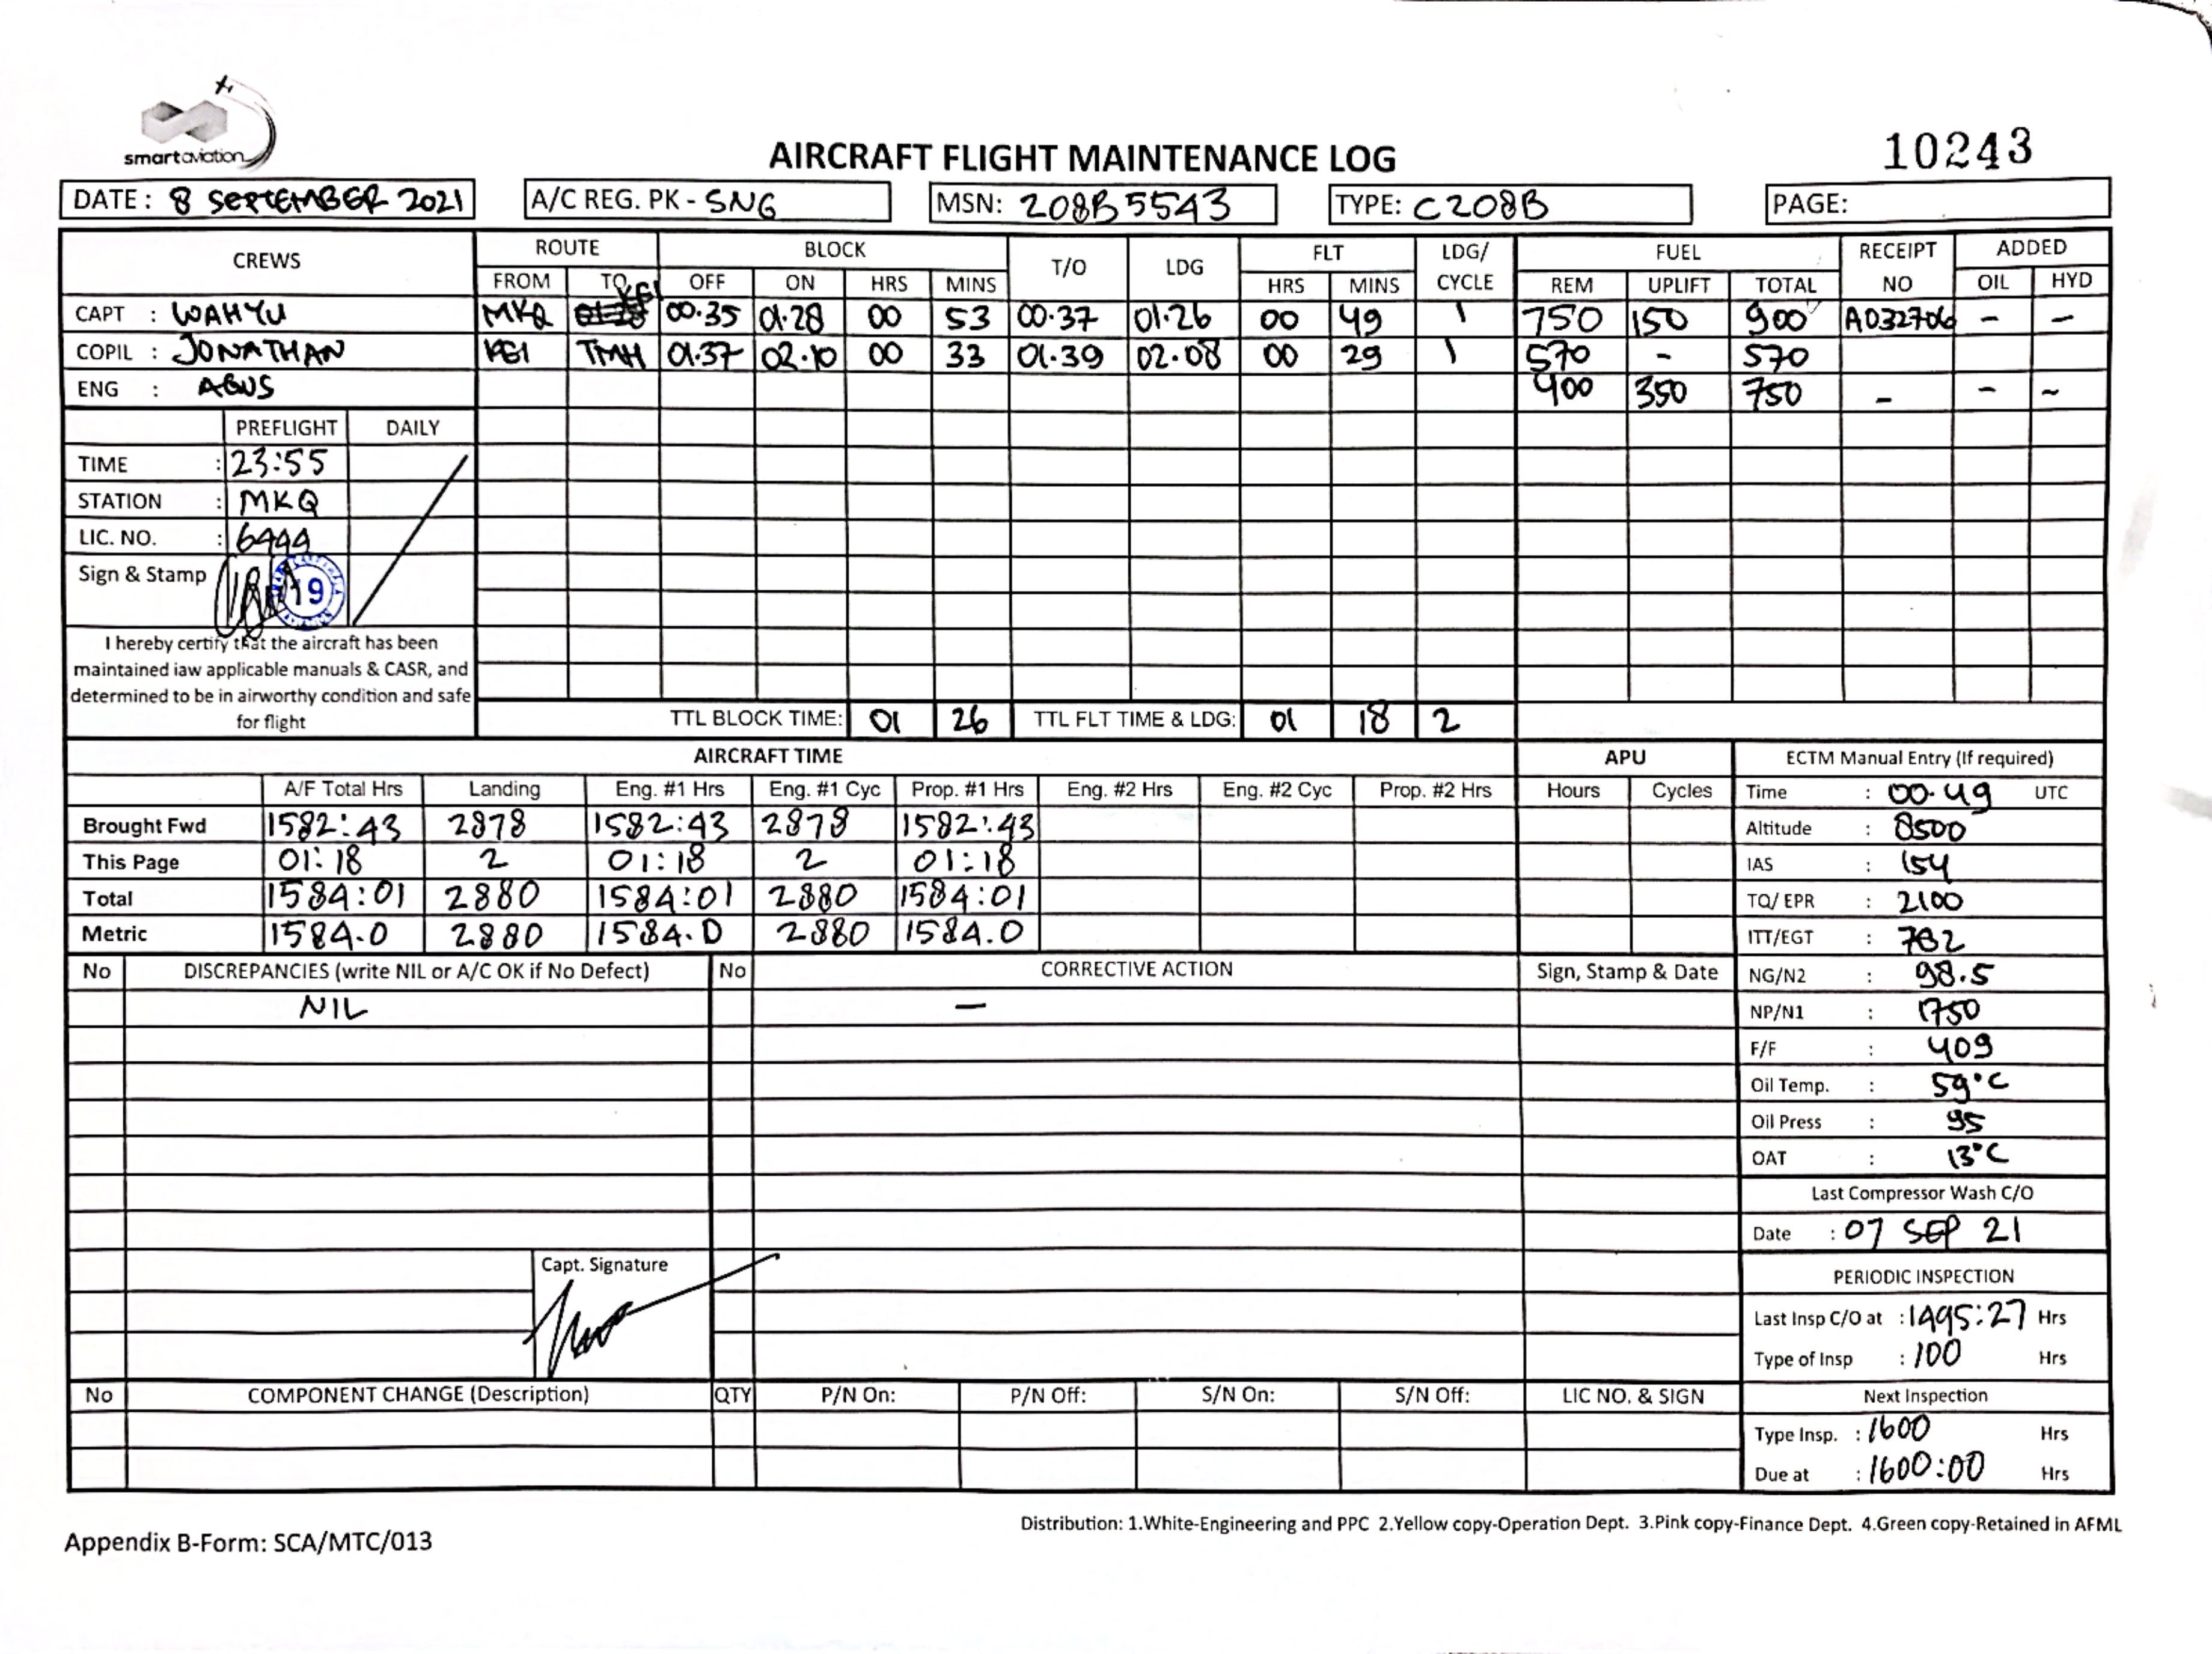 smart aviation
AIRCRAFT FLIGHT MAINTENANCE LOG
10243
DATE : 8 SEPTEMBER 2021 A/C REG. PK - SNG MSN: 208B5543 TYPE: C208B PAGE:
CREWS ROUTE BLOCK T/O LDG FLT LDG/ CYCLE FUEL RECEIPT NO ADDED
FROM TO OFF ON HRS MINS HRS MINS REM UPLIFT TOTAL OIL HYD
CAPT : WAHYU MKQ KGI 00.35 01.28 00 53 00.37 01.26 00 49 1 750 150 900 A032706 - -
COPIL : JONATHAN KGI TMH 01.37 02.10 00 33 01.39 02.08 00 29 1 570 - 570
ENG : AGUS 400 350 750 - - -
PREFLIGHT DAILY
TIME : 23:55
STATION : MKQ
LIC. NO. : 6444
Sign & Stamp 19
I hereby certify that the aircraft has been
maintained iaw applicable manuals & CASR, and
determined to be in airworthy condition and safe
for flight
TTL BLOCK TIME: 01 26 TTL FLT TIME & LDG: 01 18 2
AIRCRAFT TIME APU ECTM Manual Entry (If required)
A/F Total Hrs Landing Eng. #1 Hrs Eng. #1 Cyc Prop. #1 Hrs Eng. #2 Hrs Eng. #2 Cyc Prop. #2 Hrs Hours Cycles Time : 00.49 UTC
Brought Fwd 1582:43 2878 1582:43 2878 1582:43 Altitude : 8500
This Page 01:18 2 01:18 2 01:18 IAS : 154
Total 1584:01 2880 1584:01 2880 1584:01 TQ/ EPR : 2100
Metric 1584.0 2880 1584.0 2880 1584.0 ITT/EGT : 782
No DISCREPANCIES (write NIL or A/C OK if No Defect) No CORRECTIVE ACTION Sign, Stamp & Date NG/N2 : 98.5
NIL — NP/N1 : 1750
F/F : 409
Oil Temp. : 59°C
Oil Press : 95
OAT : 13°C
Last Compressor Wash C/O
Date : 07 SEP 21
Capt. Signature
PERIODIC INSPECTION
Last Insp C/O at : 1495:27 Hrs
Type of Insp : 100 Hrs
No COMPONENT CHANGE (Description) QTY P/N On: P/N Off: S/N On: S/N Off: LIC NO. & SIGN Next Inspection
Type Insp. : 1600 Hrs
Due at : 1600:00 Hrs
Distribution: 1.White-Engineering and PPC 2.Yellow copy-Operation Dept. 3.Pink copy-Finance Dept. 4.Green copy-Retained in AFML
Appendix B-Form: SCA/MTC/013